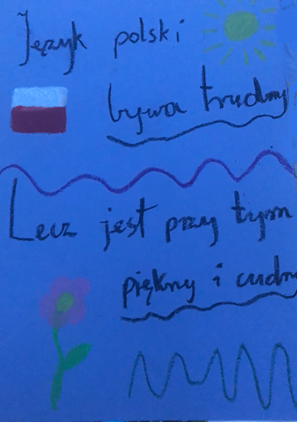 Język polski
bywa trudny
Lecz jest przy tym
piękny i cudny